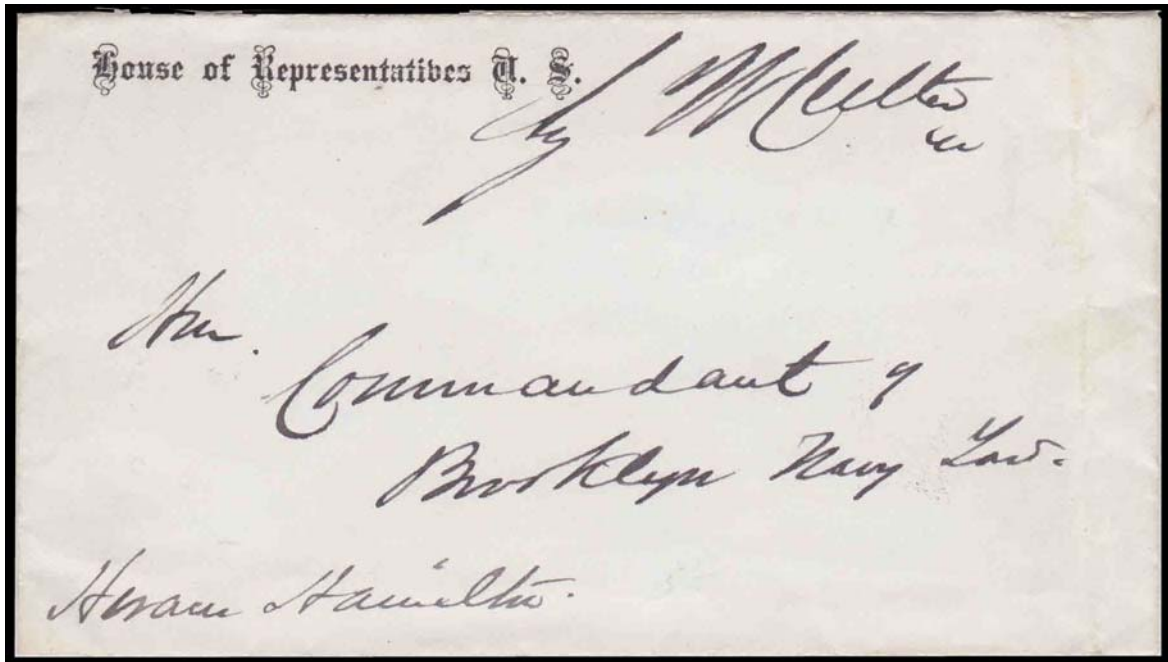 House of Representatives U. S.
Hon.
Commandant of
Brooklyn Navy Yard.
Hiram Hamilton.